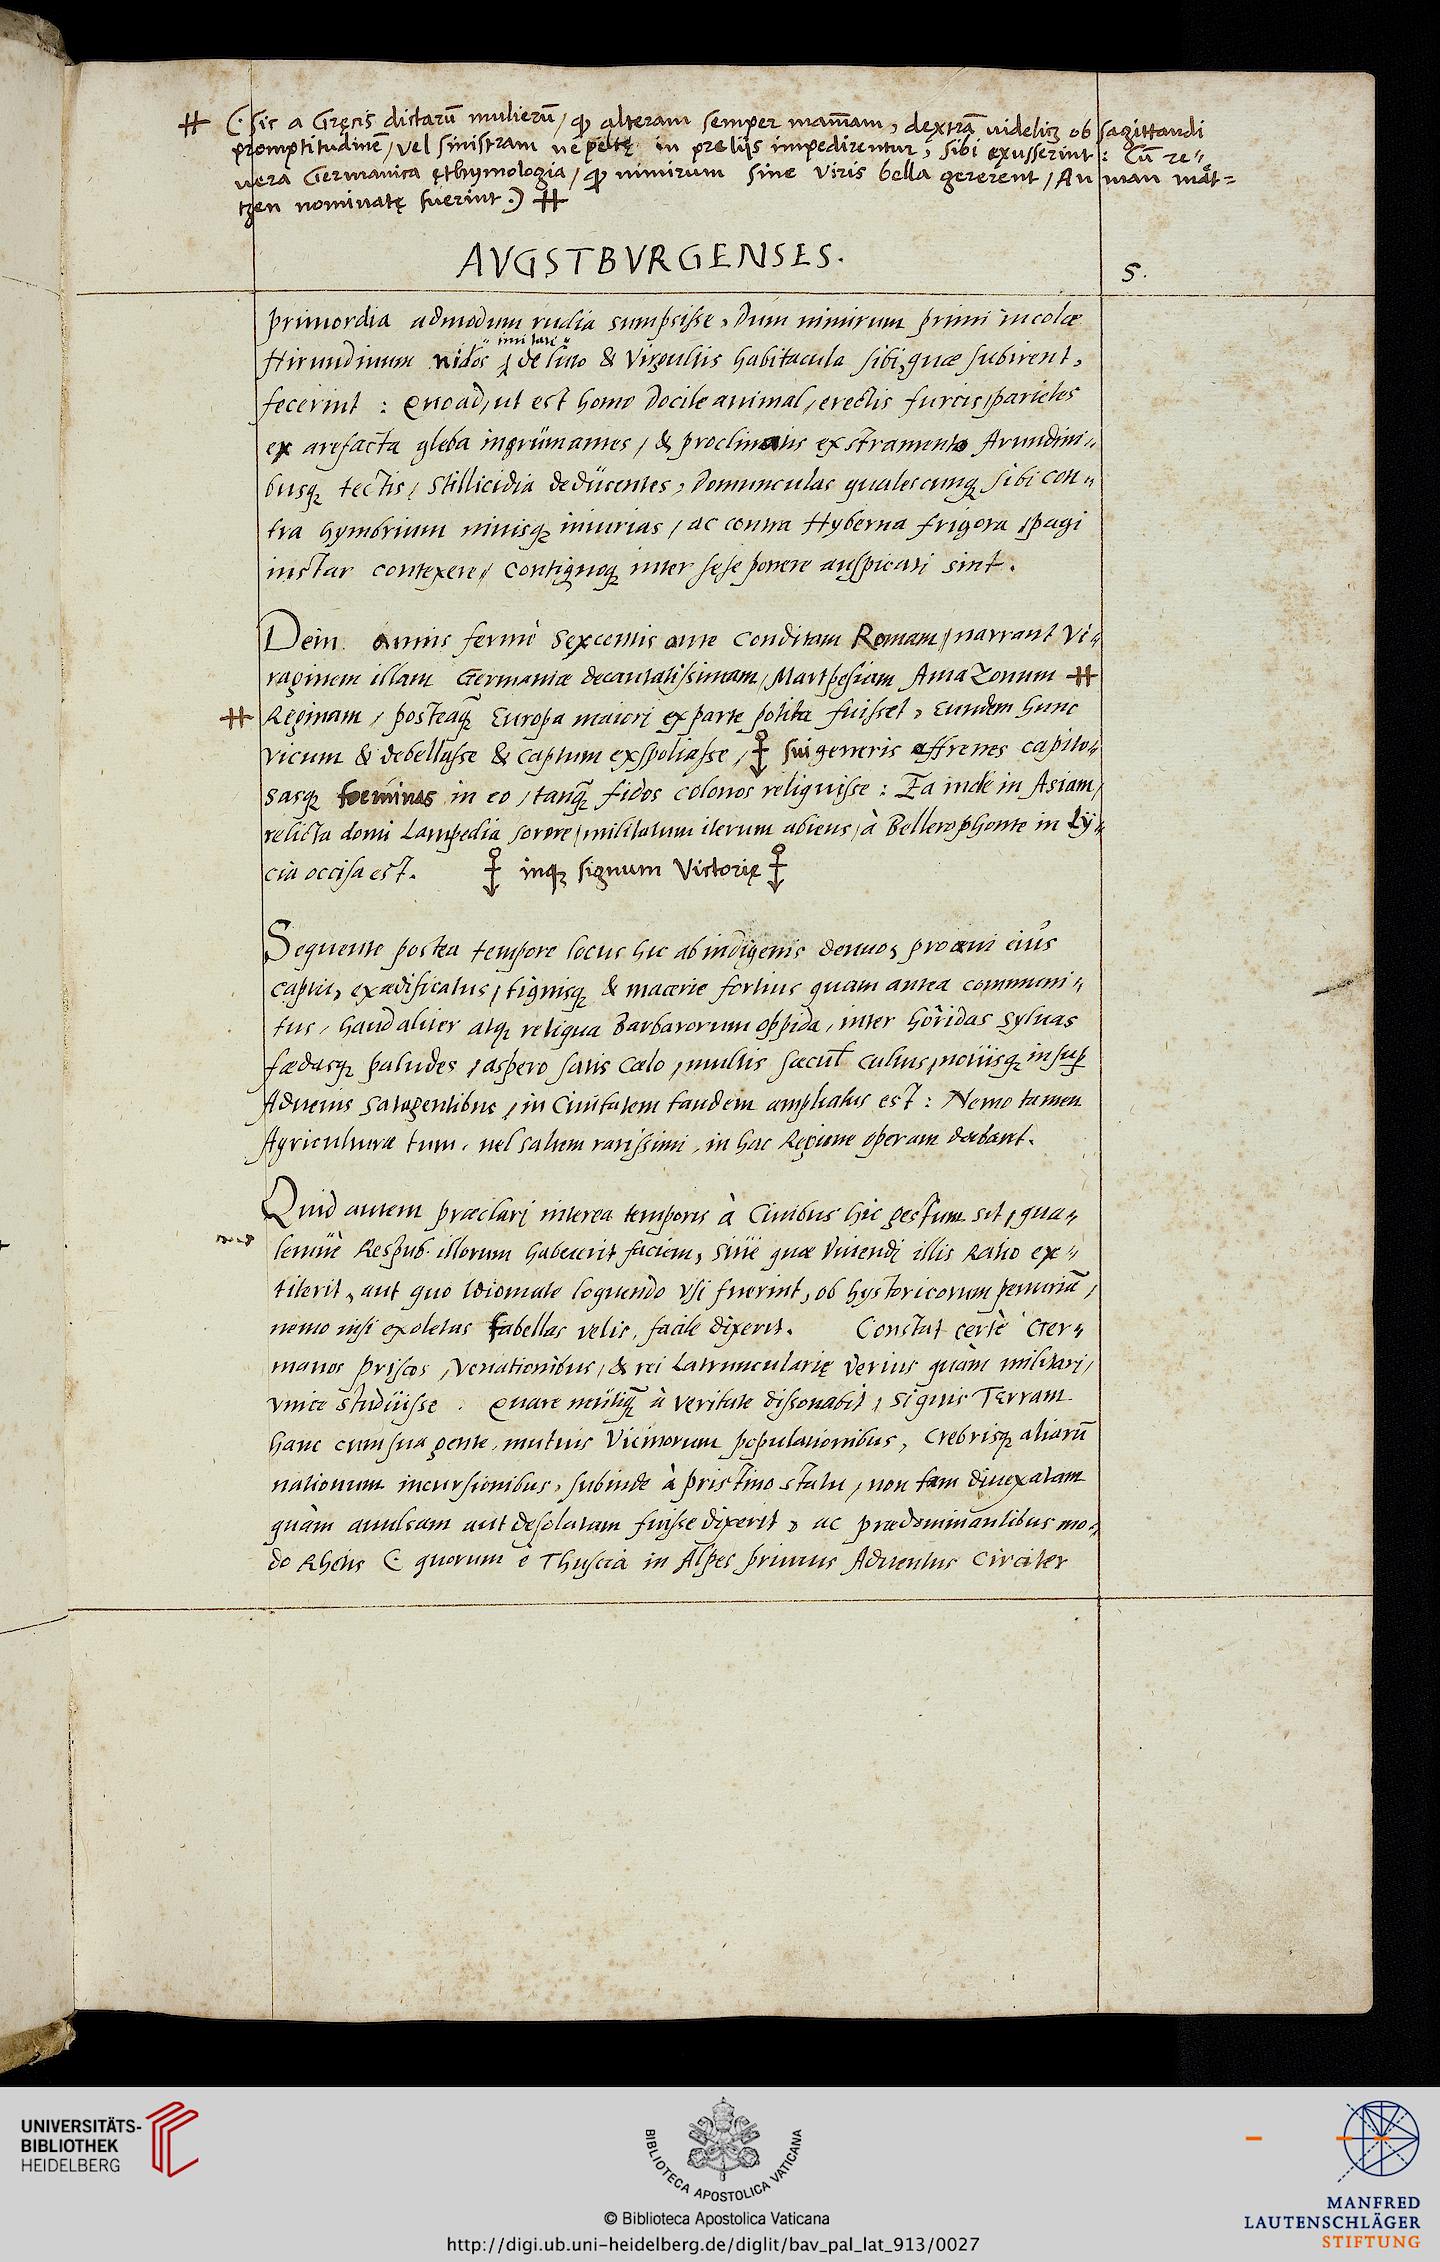 (· Sic a Gręcis dictarũ mulierũ / ꝙ alteram semper mam̃am, dęxtrã uidelicꝫ ob sagittandi
promptitudinẽ / vel sinistram ne peltę in pręlijs impedirentur, sibi exusserint : Cũ re=
uera Germanica ęthymologia / ꝙ nimirum sine viris bella gererent / An man mät=
tzen nominatę fuerint ·)
AVGSTBVRGENSES.
5.
primordia admodum rudia sumpsisse, Dum nimirum primi incolæ
imitati
Hirundinum nidos, de limo & Virgultis habitacula sibi, quæ subirent,
fecerint : Quoad, ut est homo docile animal, erectis furcis, parietes
ex arefacta gleba ingrümantes, & proclinatis ex stramento Arundini=
busqꝫ tectis, Stillicidia dedücentes, Domunculas qualescunqꝫ sibi con=
tra hymbrium niuisqꝫ iniurias, ac contra Hyberna frigora, pagi
instar contexere, Contignoqꝫ inter sese ponere auspicati sint.
Dein annis fermè Sexcentis ante Conditam Romam, narrant Vi=
raginem illam Germaniæ decantatissimam, Marthesiam AmaZonum
Reginam, posteaqꝫ̃ Europa maiori ex parte potita fuisset, Eundem hunc
vicum & debellasse & captum exspoliasse, sui generis effrenes capito=
sasqꝫ foeminas in eo, tanqꝫ̃ fidos colonos reliquisse : Ea inde in Asiam,
relicta domi Lampedia sorore, militatum iterum abiens, à Bellerophonte in Ly=
cia occisa est. inqꝫ signum Victorię
Sequente postea tempore locus hic ab indigenis denuo, pro æui eius
captu, exædificatus, tignisqꝫ & macerie fortius quam antea communi=
tus, haud aliter atqꝫ reliqua Barbarorum oppida, inter hõridas Syluas
fædasqꝫ paludes, aspero satis Cælo, multis sæcul̃ cultus, nouisqꝫ insuꝑ
Aduenis Satagentibus, in Ciuitatem tandem ampliatus est : Nemo tamen
Agriculturæ tum, uel saltem rarissimi, in hac Regione operam dabant.
Quid autem præclari interea temporis à Ciuibus hic gestum sit, qua=
lemue Respub. illorum habuerit faciem, Siue quæ Viuendi illis Ratio ex=
titerit, aut quo Idiomate loquendo Vsi fuerint, ob hystoricorum penuriã,
nemo nisi exoletas fabellas velis, facile dixerit. Constat certè Ger=
manos priscos, Venationibus, & rei Latruncularię Verius quàm militari,
vnice Studüisse. Quare neütiqꝫ̃ à veritate dissonabit, Siquis Terram
hanc cum sua gente, mutuis Vicinorum populationibus, Crebrisqꝫ aliarũ
nationum incursionibus, subinde à pristino statu, non tam diuexatam
quàm auulsam aut desolatam fuisse dixerit, ac prædominantibus mo=
do Rhetis (· quorum è Thuscia in Alpes primus Aduentus Circiter
UNIVERSITÄTS-
BIBLIOTHEK
HEIDELBERG
BIBLIOTECA APOSTOLICA VATICANA
© Biblioteca Apostolica Vaticana
http://digi.ub.uni-heidelberg.de/diglit/bav_pal_lat_913/0027
MANFRED
LAUTENSCHLÄGER
STIFTUNG